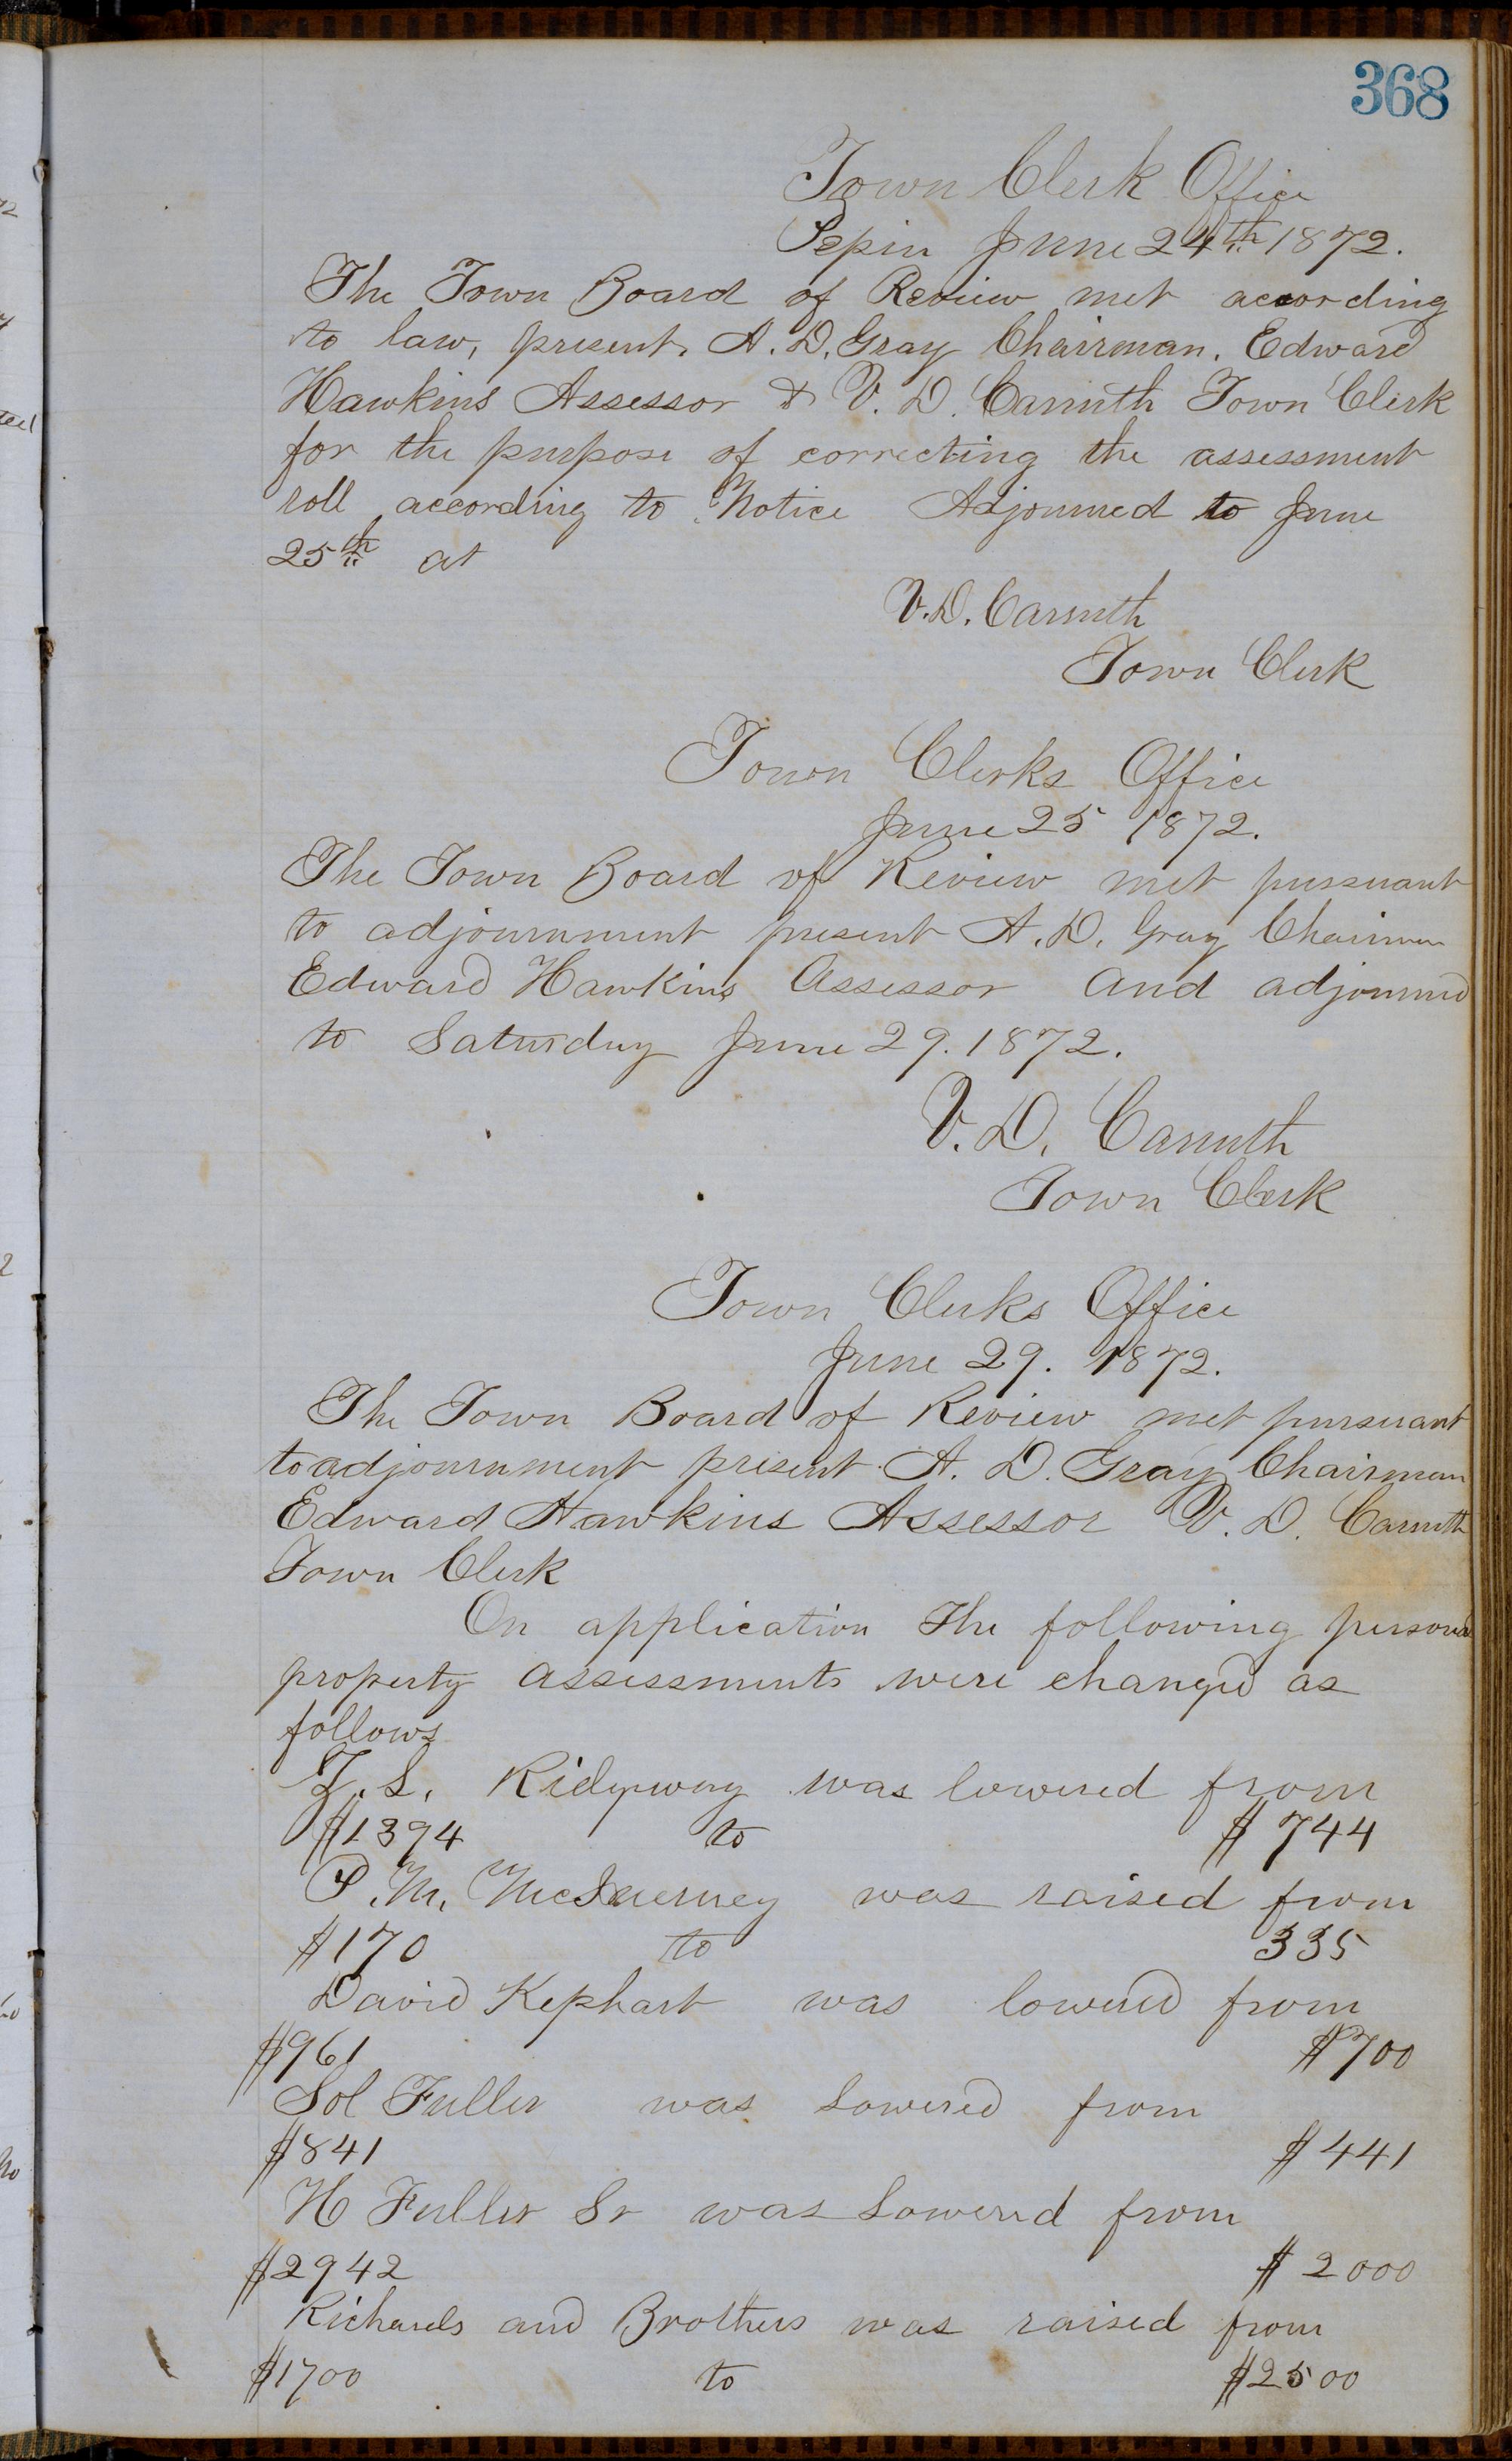 368
Town Clerk Office
Pepin June 24th 1872.
The Town Board of Review met according
to law, present, A. D. Gray Chairman. Edward
Hawkins Assessor & V. D. Carruth Town Clerk
for the purpose of correcting the assessment
roll according to Notice Adjourned to June
25th at
V. D. Carruth
Town Clerk
Town Clerks Office
June 25 1872.
The Town Board of Review met pursuant
to adjournment present A. D. Gray Chairman
Edward Hawkins Assessor and adjourned
to Saturday June 29. 1872.
V. D. Carruth
Town Clerk
Town Clerks Office
June 29. 1872.
The Town Board of Review met pursuant
to adjournment present A. D. Gray Chairman
Edward Hawkins Assessor V. D. Carruth
Town Clerk
On application The following personal
property assessments were changed as
follows
S. Ridgway was lowered from
$1394 to $744
P. M. McInerney was raised from
$170 to 335
David Kephart was lowered from
$961 $700
Sol Fuller was Lowered from
$841 $441
H Fuller Sr was Lowered from
$2942 $2000
Richards and Brothers was raised from
$1700 to $2500